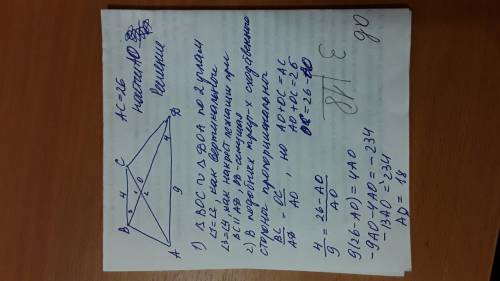 AC=26
Найти AO
Решение
B 4 C
O
A 9 D
4
1) △ BOC ∾ △ DOA по 2 углам
∠1=∠2, как вертикальные
∠3=∠4 как накрест лежащие при
BC ∥ AD, BD-секущая
2) В подобных треуг-х сходственные
стороны пропорциональны
BC/AD = OC/AO , но AO+OC=AC
AO+OC=26
OC=26-AO
4/9 = 26-AO/AO
9(26-AO)=4AO
-9AO-4AO=-234
-13AO=-234
AO=18